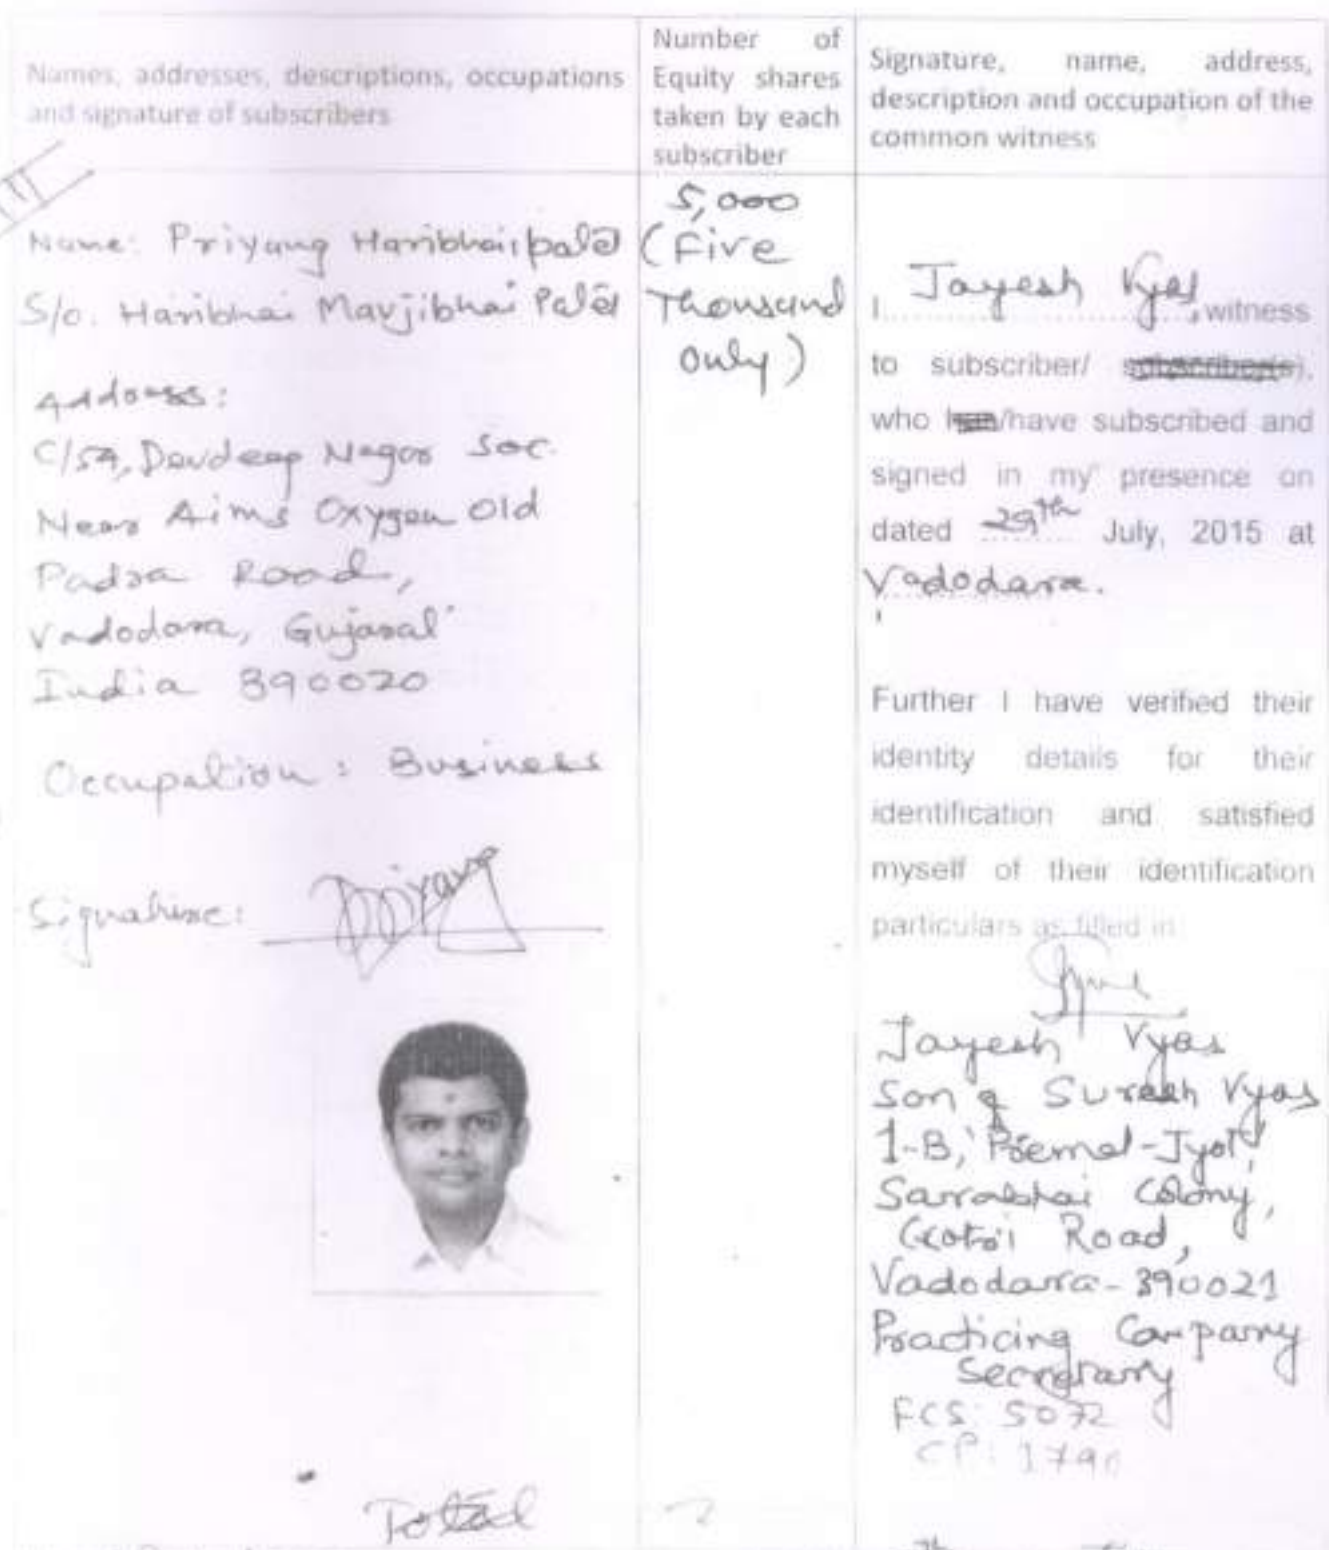 Names, addresses, descriptions, occupations
and signature of subscribers
Number of
Equity shares
taken by each
subscriber
Signature, name, address,
description and occupation of the
common witness
Name: Priyang Haribhai patel
S/o. Haribhai Mavjibhai Patel
Address:
C/54, Devdeep Nagar Soc.
Near Aims Oxygen Old
Padra Road,
Vadodara, Gujarat
India 390020
Occupation: Business
Signature: Priyang
5,000
(Five
Thousand
only)
I Jayesh Vyas, witness
to subscriber/ subscriber(s),
who has/have subscribed and
signed in my presence on
dated 29th July, 2015 at
Vadodara.
Further I have verified their
identity details for their
identification and satisfied
myself of their identification
particulars as filled in
Jayesh Vyas
Son of Suresh Vyas
1-B, 'Premal-Jyot',
Sarabhai Colony,
Gotri Road,
Vadodara-390021
Practicing Company
Secretary
FCS: 5072
CP: 1790
Total